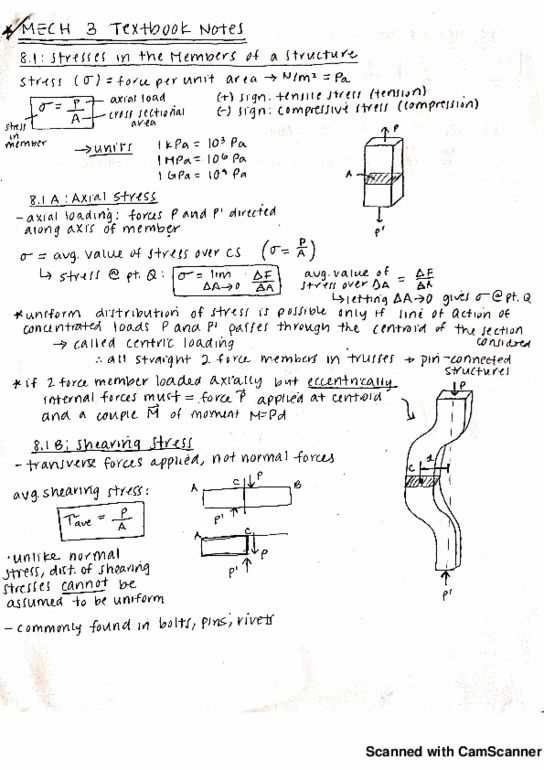 * MECH 3 Textbook Notes
8.1: Stresses in the Members of a Structure
stress (σ) = force per unit area → N/m² = Pa
σ = P/A
axial load
cross sectional area
stress in member
(+) sign: tensile stress (tension)
(-) sign: compressive stress (compression)
→ units
1 kPa = 10³ Pa
1 MPa = 10⁶ Pa
1 GPa = 10⁹ Pa
P
A
P'
8.1 A: Axial Stress
- axial loading: forces P and P' directed
along axis of member
σ = avg. value of stress over CS (σ = P/A)
↳ stress @ pt. Q: σ = lim ΔA→0 ΔF/ΔA
avg. value of stress over ΔA = ΔF/ΔA
↳ letting ΔA→0 gives σ @ pt. Q
* uniform distribution of stress is possible only if line of action of
concentrated loads P and P' passes through the centroid of the section
considered
→ called centric loading
∴ all straight 2 force members in trusses → pin-connected
structures
* if 2 force member loaded axially but eccentrically
internal forces must = force P⃗ applied at centroid
and a couple M⃗ of moment M=Pd
P
C
d
P'
8.1 B: Shearing Stress
- transverse forces applied, not normal forces
avg. shearing stress:
τave = P/A
A C P B
P'
A C
P' P
· unlike normal
stress, dist. of shearing
stresses cannot be
assumed to be uniform
- commonly found in bolts, pins, rivets
Scanned with CamScanner